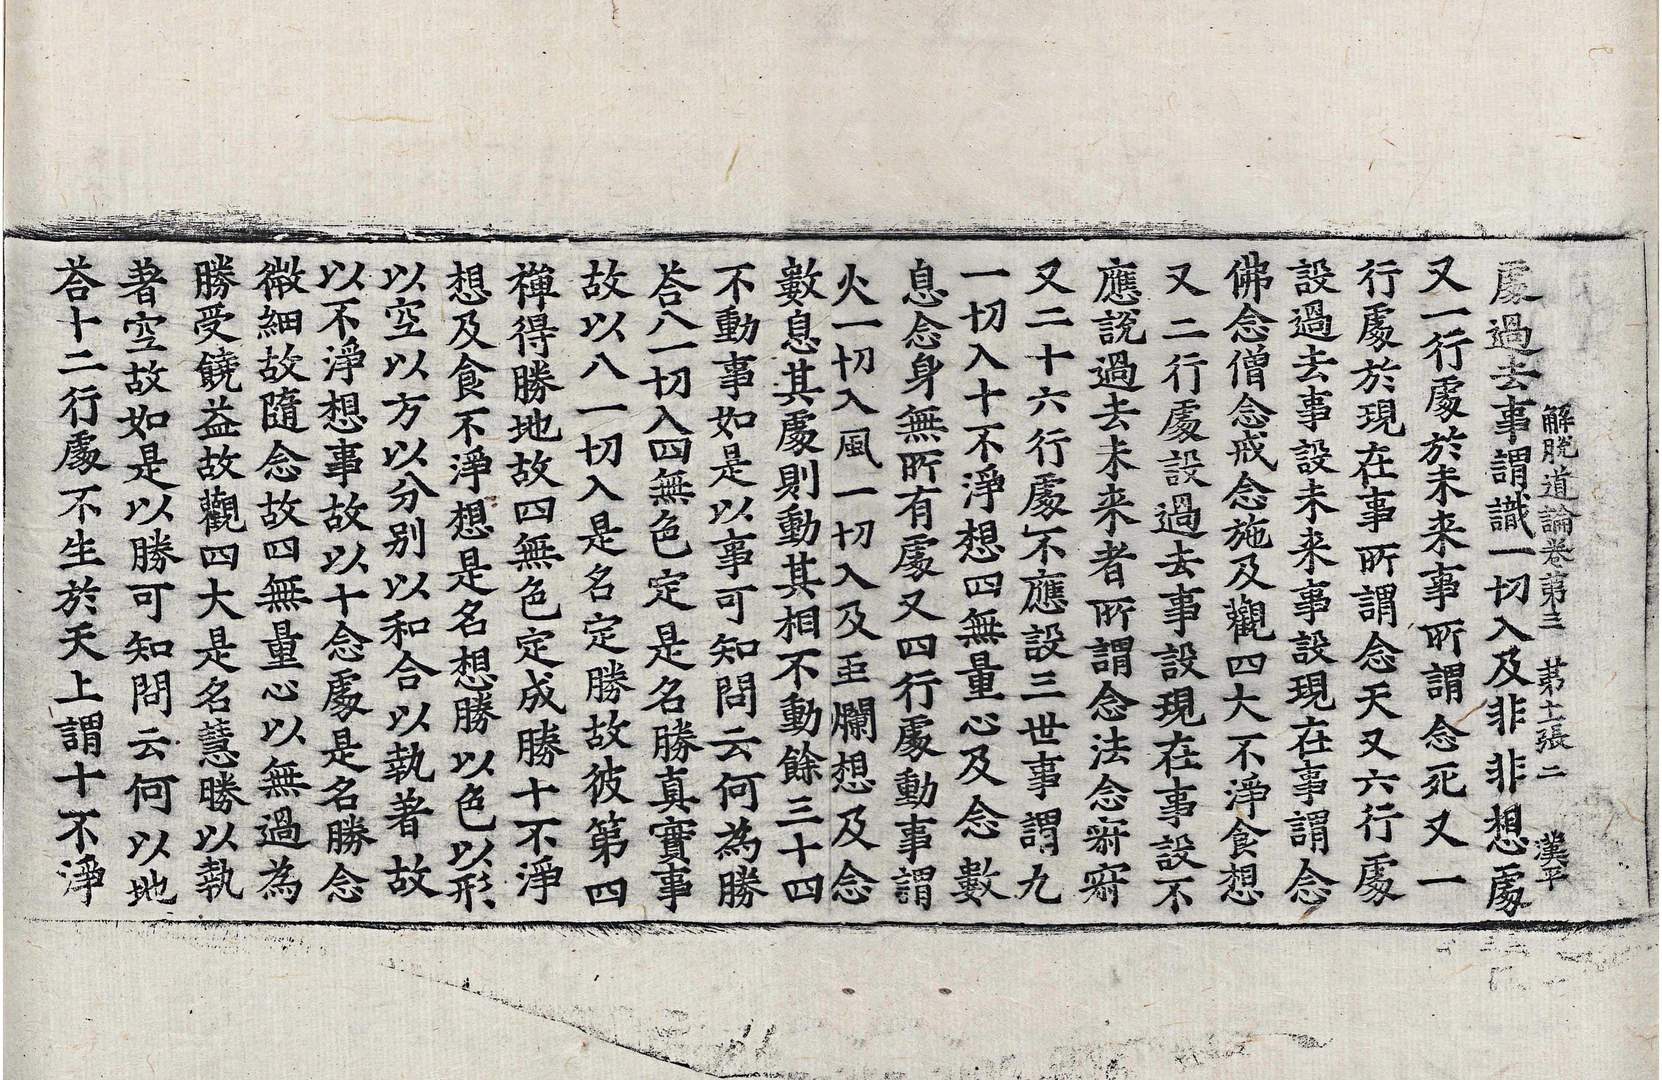 解脫道論卷第三　第十一張　二　漢平
處過去事謂識一切入及非非想處
又一行處於未来事所謂念死又一
行處於現在事所謂念天又六行處
設過去事設未来事設現在事謂念
佛念僧念戒念施及觀四大不淨食想
又二行處設過去事設現在事設不
應說過去未来者所謂念法念寂寂
又二十六行處不應設三世事謂九
一切入十不淨想四無量心及念數
息念身無所有處又四行處動事謂
火一切入風一切入及虫爛想及念
數息其處則動其相不動餘三十四
不動事如是以事可知問云何為勝
荅八一切入四無色定是名勝真實事
故以八一切入是名定勝故彼第四
禪得勝地故四無色定成勝十不淨
想及食不淨想是名想勝以色以形
以空以方以分别以和合以執著故
以不淨想事故以十念處是名勝念
微細故隨念故四無量心以無過為
勝受饒益故觀四大是名慧勝以執
著空故如是以勝可知問云何以地
荅十二行處不生於天上謂十不淨